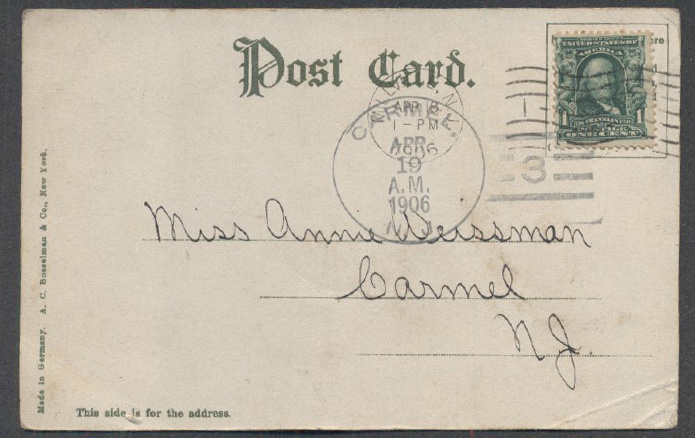 Post Card.
UNITED STATES OF
AMERICA
1 FRANKLIN 1
POSTAGE
ONE CENT
APR 18
1 - PM
1906
CARMEL.
APR
19
A.M.
1906
N.J.
1
3
Miss Annie Weissman
Carmel
N.J.
Made in Germany. A. C. Bosselman & Co., New York.
This side is for the address.